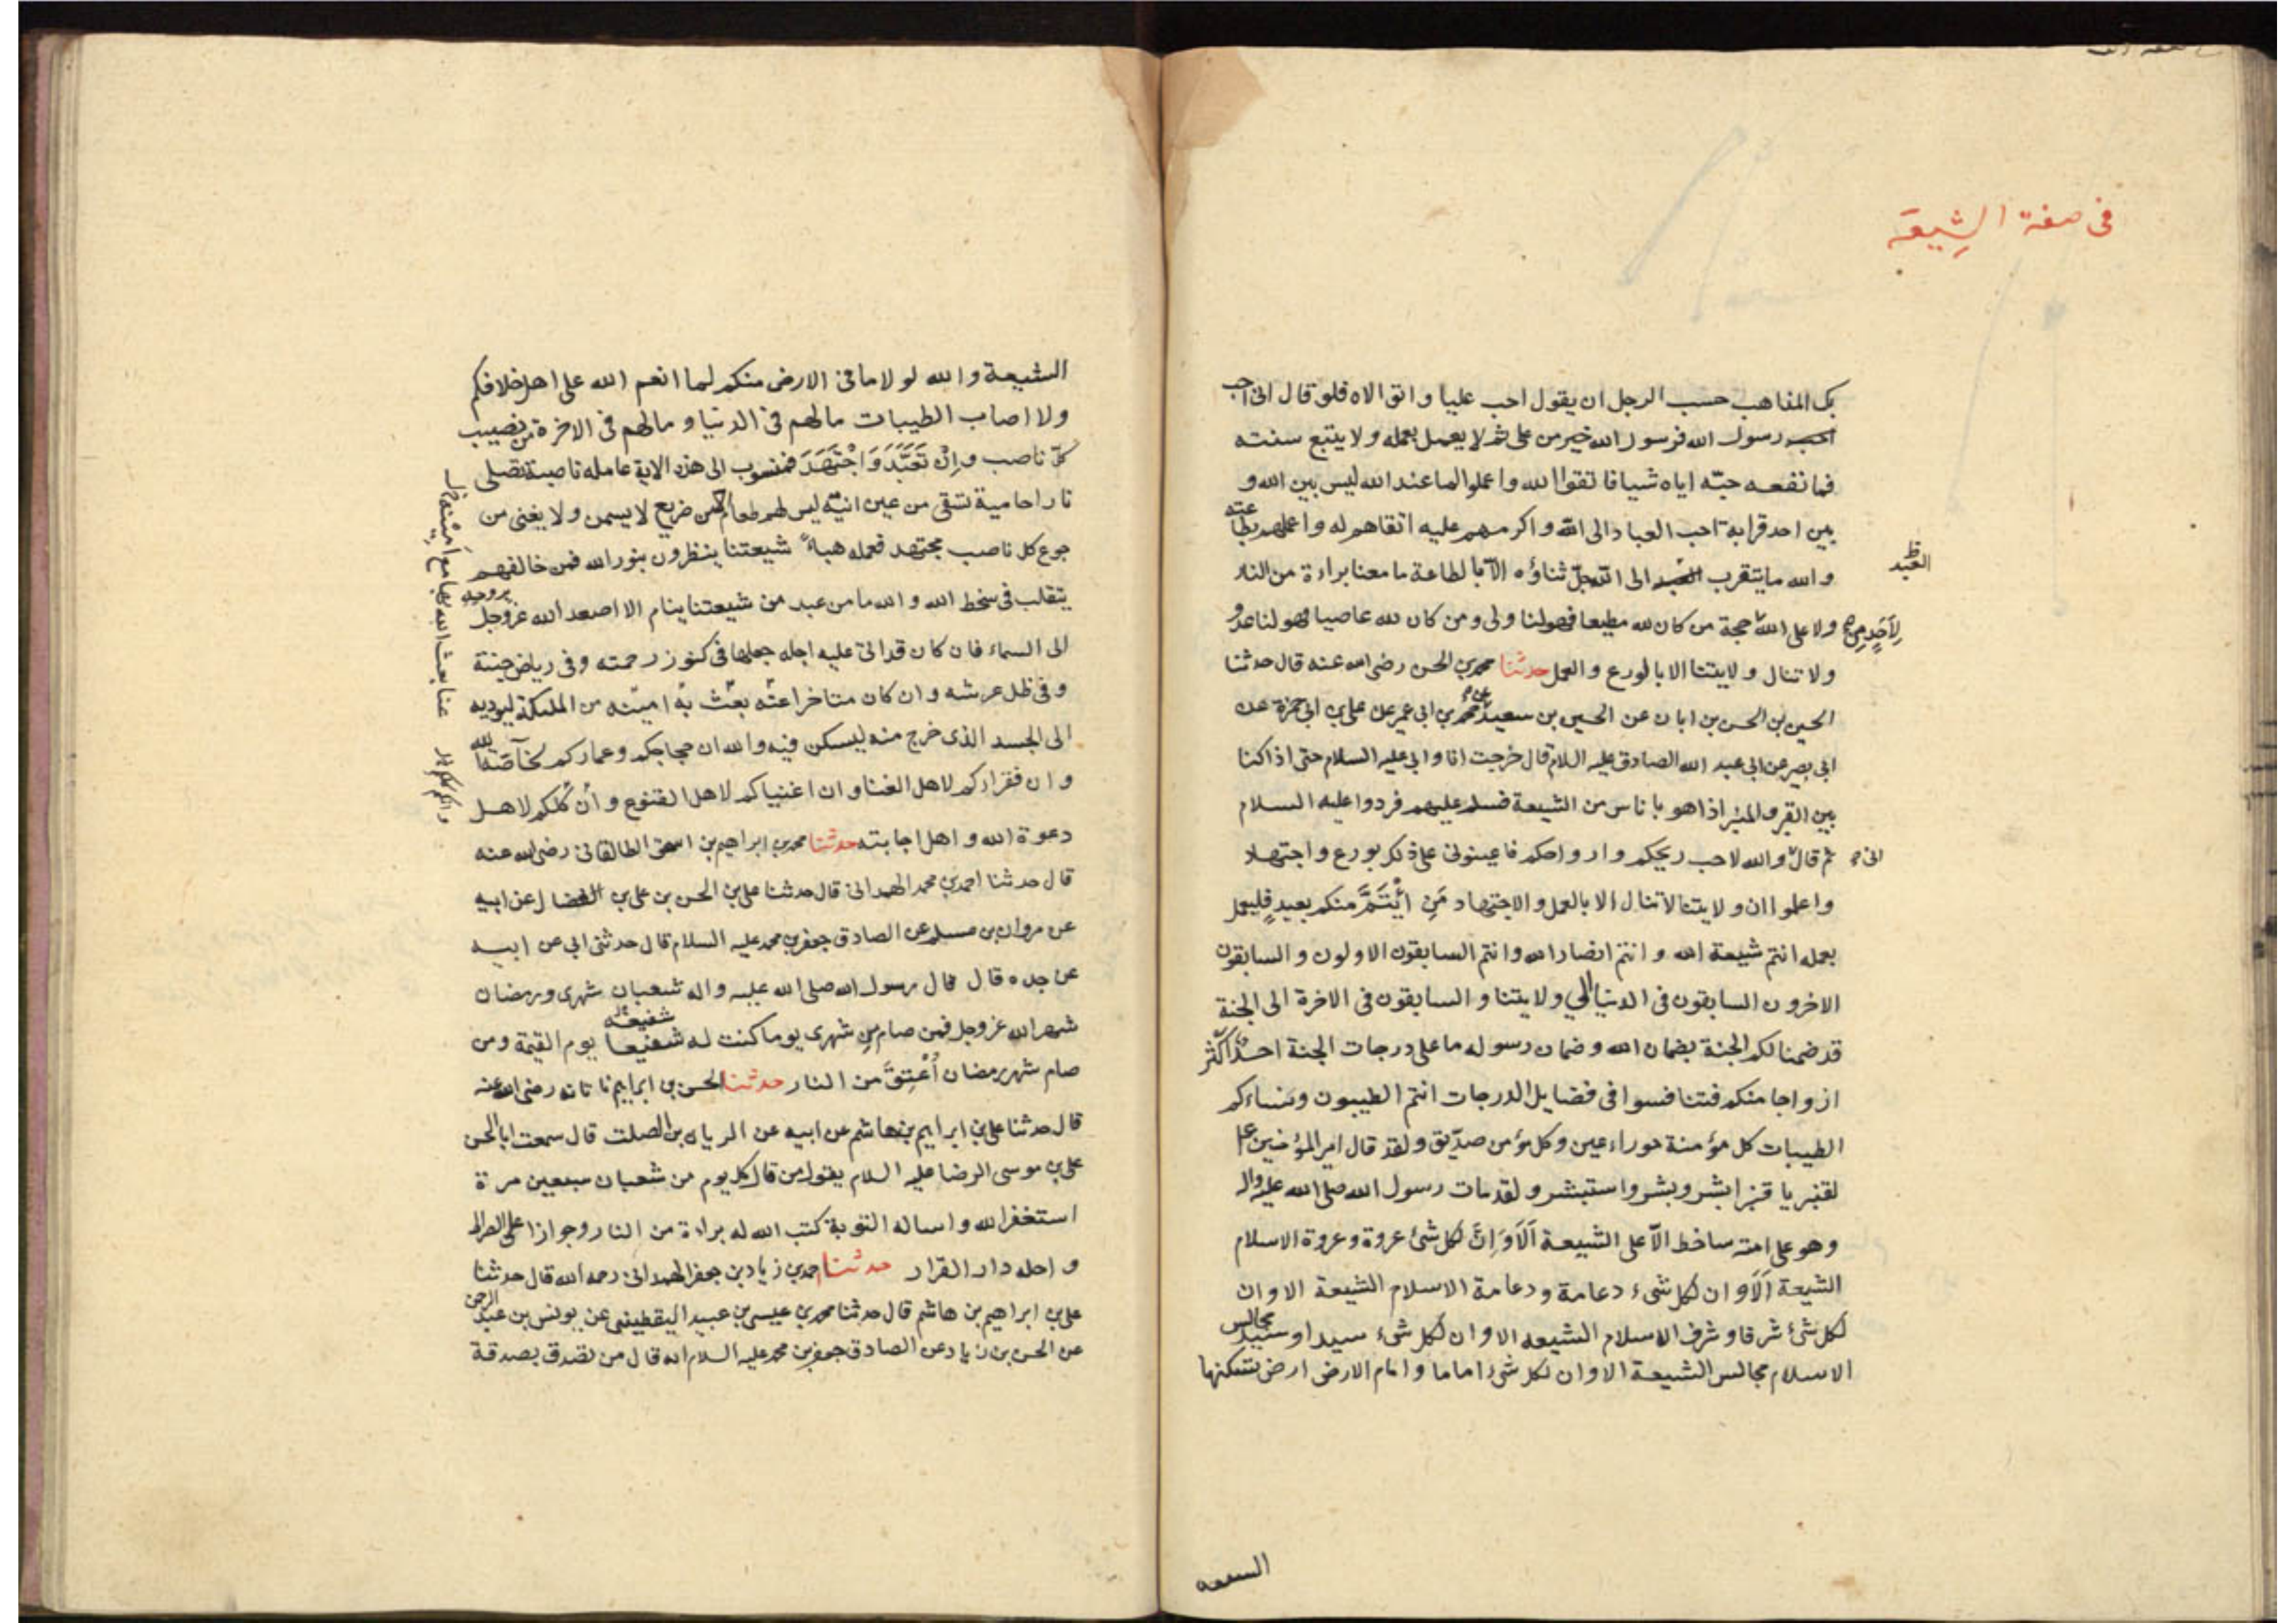 في صفة الشيعة
بك المذاهب حسب الرجل ان يقول احب عليا واتولاه فلو قال اني احب
رسول الله فرسول الله خير من علي ثم لا يعمل بعمله ولا يتبع سنته
فما نفعه حبه اياه شيا فاتقوا الله واعملوا لما عند الله ليس بين الله و
بين احد قرابة احب العباد الى الله واكرمهم عليه اتقاهم له واعملهم بطاعته
والله ما يتقرب العبد الى الله جل ثناؤه الا بالطاعة ما معنا براءة من النار
العبد ظ
ولا على الله حجة من كان لله مطيعا فهو لنا ولي ومن كان لله عاصيا فهو لنا عدو
لاحد منكم
ولا تنال ولايتنا الا بالورع والعمل حدثنا محمد بن الحسن رضي الله عنه قال حدثنا
الحسين بن الحسن بن ابان عن الحسين بن سعيد عن محمد بن ابي عمير عن علي بن ابي حمزة عن
ابي بصير عن ابي عبد الله الصادق عليه السلام قال خرجت انا وابي عليه السلام حتى اذا كنا
بين القبر والمنبر اذا هو باناس من الشيعة فسلم عليهم فردوا عليه السلام
ثم قال والله لاحب ريحكم وارواحكم فاعينوني على ذلك بورع واجتهاد
اني
واعلموا ان ولايتنا لا تنال الا بالعمل والاجتهاد مَن ائْتَمَّ منكم بعبدٍ فليعمل
بعمله انتم شيعة الله وانتم انصار الله وانتم السابقون الاولون والسابقون
الاخرون السابقون في الدنيا الى ولايتنا والسابقون في الاخرة الى الجنة
قد ضمنا لكم الجنة بضمان الله وضمان رسوله ما على درجات الجنة احدٌ اكثر
ازواجا منكم فتنافسوا في فضايل الدرجات انتم الطيبون ونساءكم
الطيبات كل مؤمنة حوراء عين وكل مؤمن صدّيق ولقد قال امير المؤمنين ع
لقنبر يا قنبر ابشر وبشر واستبشر ولقد مات رسول الله صلى الله عليه واله
وهو على امته ساخط الّا على الشيعة اَلَا وَاِنَّ لكل شئ عروة وعروة الاسلام
الشيعة اَلَا وان لكل شئ دعامة ودعامة الاسلام الشيعة الا وان
لكل شئ شرفا وشرف الاسلام الشيعه الا وان لكل شئ سيدا وسيد مجالس
الاسلام مجالس الشيعة الا وان لكل شئ اماما وامام الارض ارض تسكنها
السیعه
الشيعة والله لو لا ما في الارض منكم لما انعم الله على اهل خلافكم
ولا اصاب الطيبات ما لهم في الدنيا وما لهم في الاخرة من نصيب
كلّ ناصب وإنْ تَعَبَّدَ وَاجْتَهَدَ فمنسوب الى هذه الاية عاملة ناصبة تصلى
نارا حامية تسقى من عين انية ليس لهم طعام الا من ضريع لا يسمن ولا يغني من
جوع كل ناصب مجتهد فعمله هباءً شيعتنا ينظرون بنور الله فمن خالفهم
يتقلب في سخط الله والله ما من عبد من شيعتنا ينام الا اصعد الله عز وجل بروحه
الى السماء فان كان قد اتى عليه اجله جعلها في كنوز رحمته وفي رياض جنته
وفي ظل عرشه وان كان متاخرا عنه بعث به امينه من الملئكة ليوديه
الى الجسد الذي خرج منه ليسكن فيه والله ان حجاجكم وعماركم لخاصة لله
وان فقراءكم لاهل الغنا وان اغنياكم لاهل القنوع وان كلكم لاهل
دعوة الله واهل اجابته حدثنا محمد بن ابراهيم بن اسحق الطالقاني رضي الله عنه
قال حدثنا احمد بن محمد الهمداني قال حدثنا علي بن الحسن بن علي بن الفضال عن ابيه
عن مروان بن مسلم عن الصادق جعفر بن محمد عليه السلام قال حدثني ابي عن ابيه
عن جده قال قال رسول الله صلى الله عليه واله شعبان شهري ورمضان
شهر الله عز وجل فمن صام من شهري يوما كنت له شفيعا يوم القيمة ومن
شفيعه
صام شهر رمضان أُعْتِقَ من النار حدثنا الحسن بن ابراهيم ناتانه رضي الله عنه
قال حدثنا علي بن ابراهيم بن هاشم عن ابيه عن الريان بن الصلت قال سمعت ابا الحسن
علي بن موسى الرضا عليه السلام يقول من قال كل يوم من شعبان سبعين مرة
استغفر الله واساله التوبة كتب الله له براءة من النار وجوازا على الصراط
واحله دار القرار حدثنا احمد بن زياد بن جعفر الهمداني رحمه الله قال حدثنا
علي بن ابراهيم بن هاشم قال حدثنا محمد بن عيسى بن عبيد اليقطيني عن يونس بن عبد الرحمن
عن الحسن بن زياد عن الصادق جعفر بن محمد عليه السلام انه قال من تصدق بصدقة